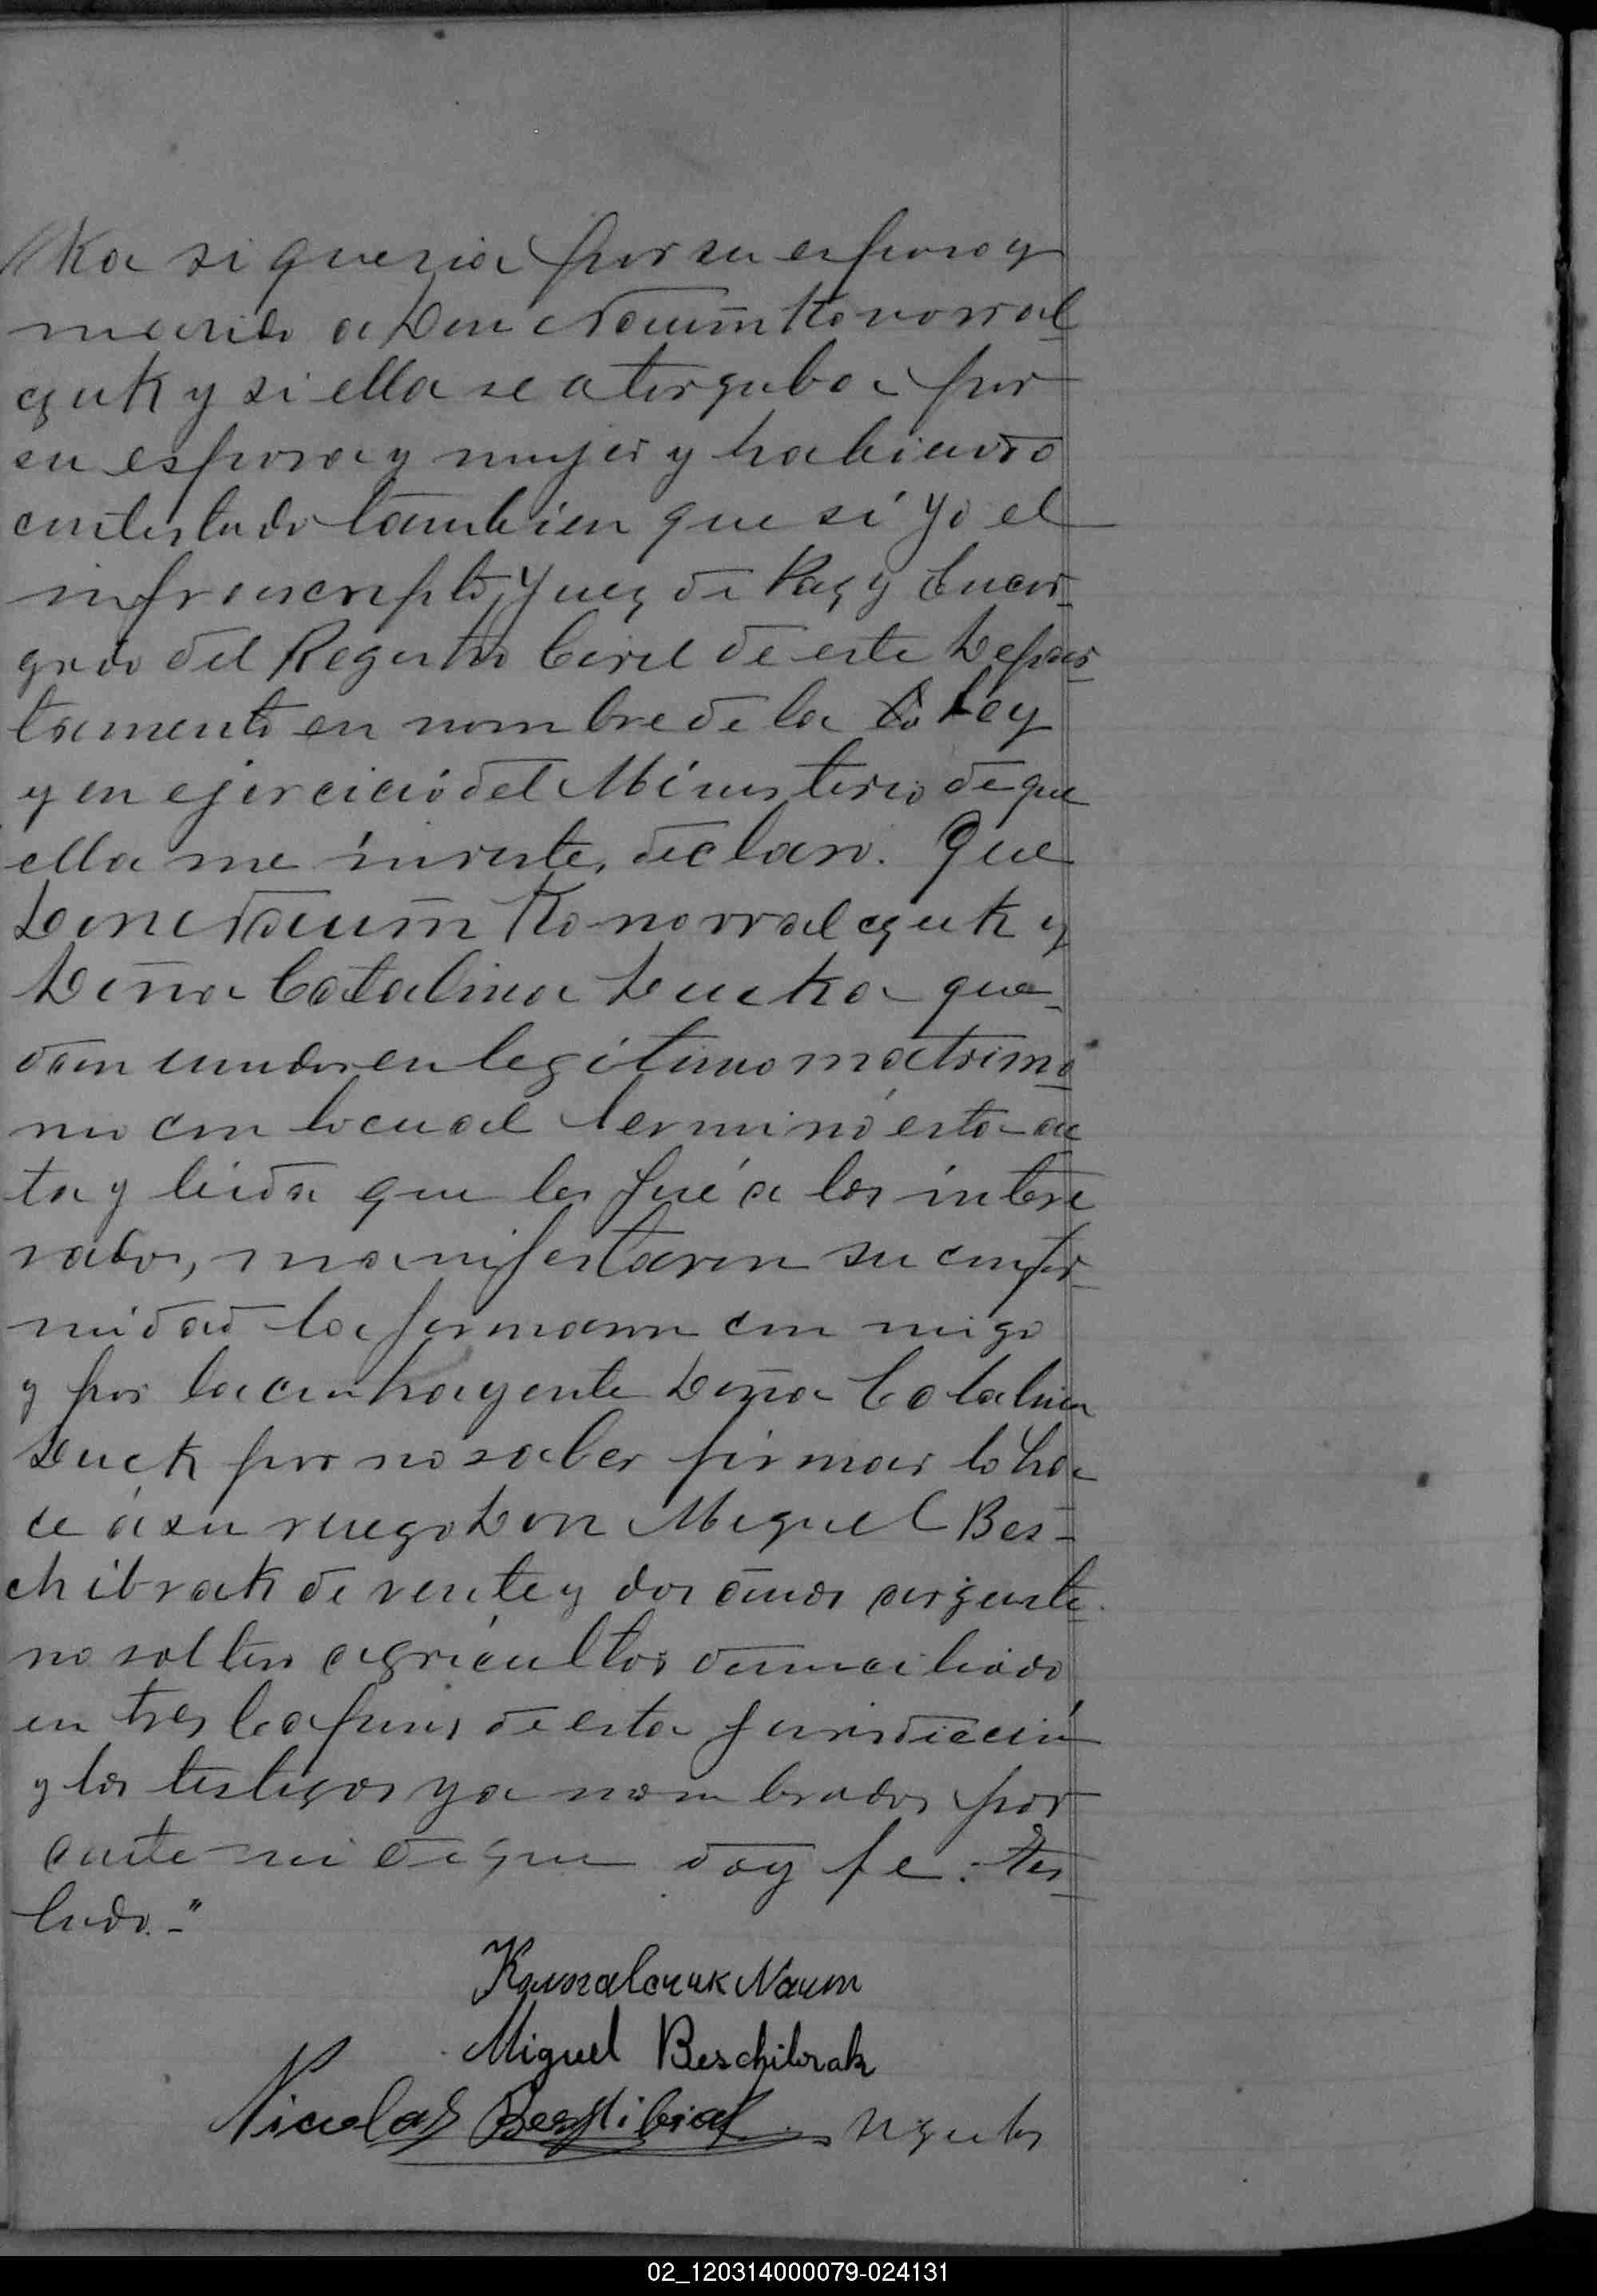 ka si queria por su esposo y
marido a Don Naum Konoval
czuk y si ella se otorgaba por
su esposa y mujer y habiendo
contestado tambien que sí yo el
infrascripto, Juez de Paz y Encar-
gado del Registro Civil de este Depar
tamento en nombre de la Ley
y en ejercicio del Ministerio de que
ella me inviste, declaro. Que
Don Naum Konovalczuk y
Doña Catalina Ducka que-
dan unidos en legítimo matrimo
nio con lo cual terminó esta ac
ta y leida que les fué a los intere
sados, manifestaron su confor-
midad la firmaron con migo
y por la contrayente Doña Catalina
Duck por no saber firmar lo ha-
ce á su ruego Don Miguel Bes-
chibrak de veinte y dos años argenti-
no soltero agricultor domiciliado
en tres Capones de esta Jurisdicción
y los testigos ya nombrados por
ante mi de que doy fe. Tes
tado."
Naum
Miguel Beschibrak
Nicolas